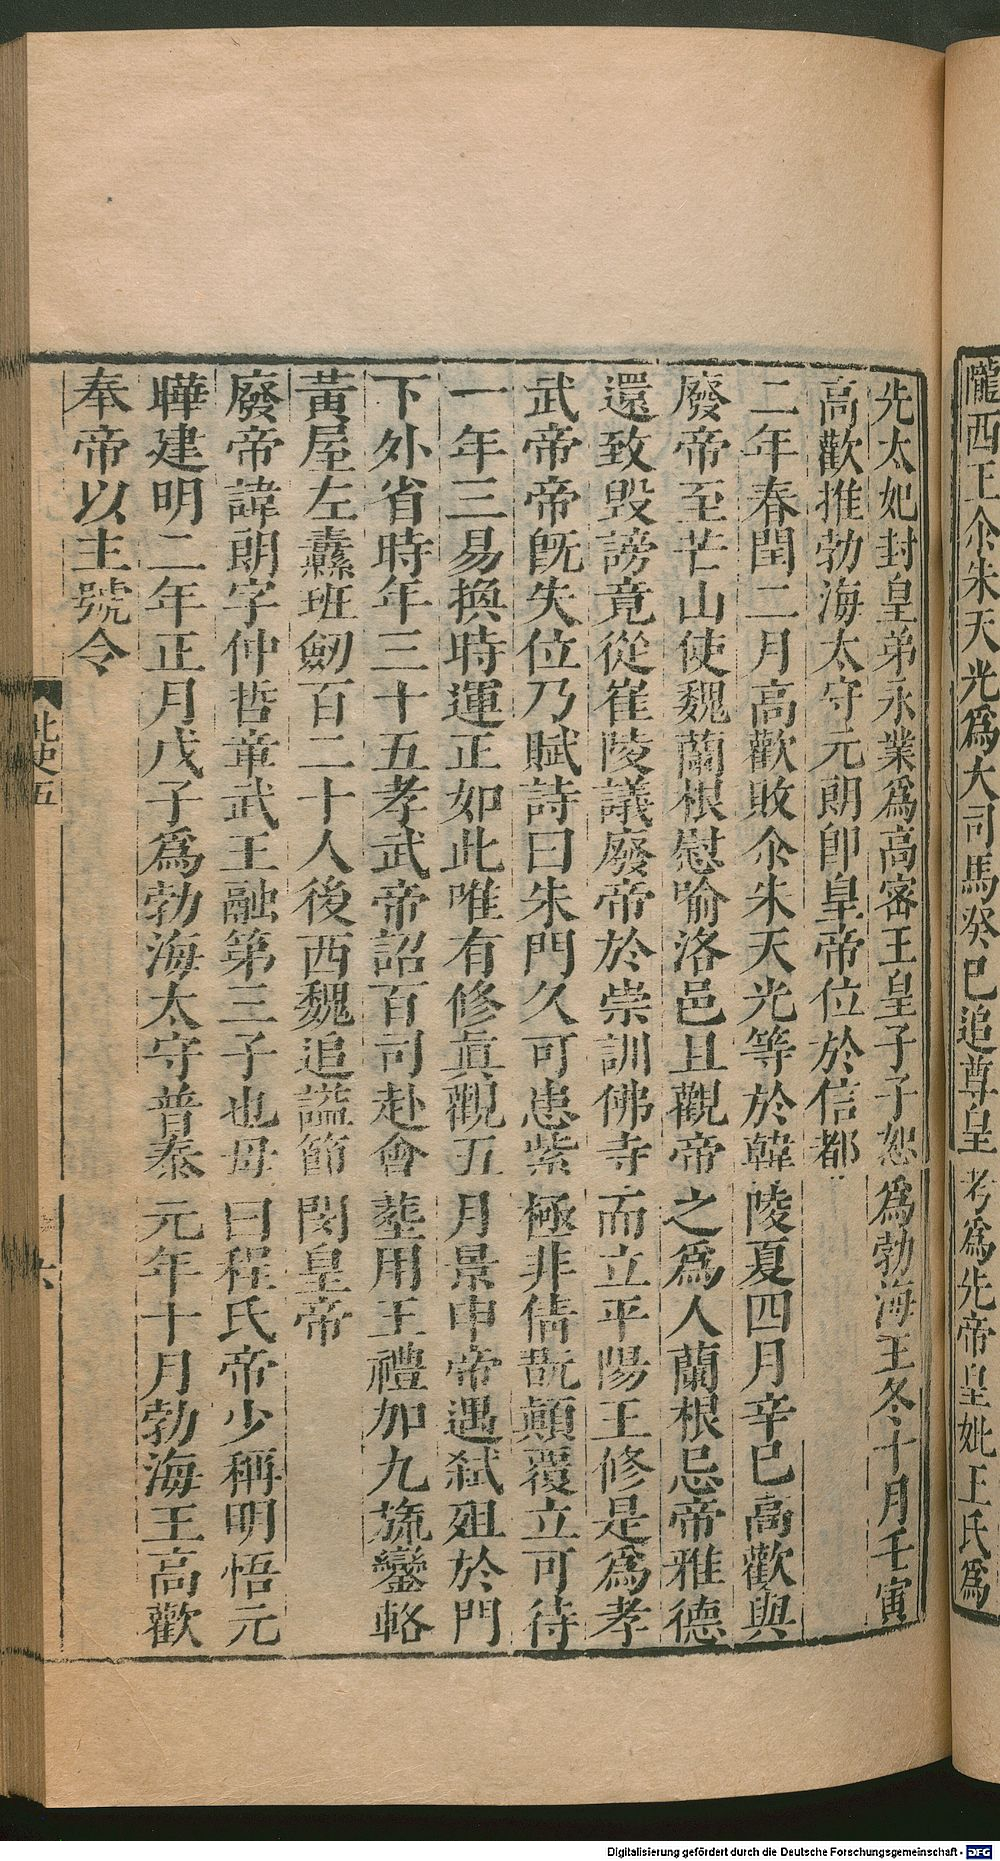 隴西王尒朱天光爲大司馬癸巳追尊皇考爲先帝皇妣王氏爲
先太妃封皇弟永業爲高密王皇子子恕爲勃海王冬十月壬寅
高歡推勃海太守元朗卽皇帝位於信都
二年春閏二月高歡敗尒朱天光等於韓陵夏四月辛巳高歡與
廢帝至芒山使魏蘭根慰喻洛邑且觀帝之爲人蘭根忌帝雅德
還致毀謗竟從崔㥄議廢帝於崇訓佛寺而立平陽王修是爲孝
武帝帝旣失位乃賦詩曰朱門久可患紫極非情翫顛覆立可待
一年三易換時運正如此唯有修眞觀五月景申帝遇弒殂於門
下外省時年三十五孝武帝詔百司赴會葬用王禮加九旒鑾輅
黃屋左纛班劒百二十人後西魏追謚節閔皇帝
廢帝諱朗字仲哲章武王融第三子也母曰程氏帝少稱明悟元
曄建明二年正月戊子爲勃海太守普泰元年十月勃海王高歡
奉帝以主號令
北史五
六
Digitalisierung gefördert durch die Deutsche Forschungsgemeinschaft - DFG